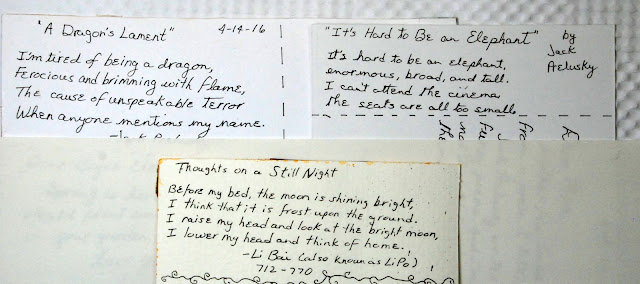 "A Dragon's Lament" 4-14-16
I'm tired of being a dragon,
Ferocious and brimming with flame,
The cause of unspeakable Terror
When anyone mentions my name.
"It's Hard to Be an Elephant" by
Jack
Prelusky
It's hard to be an elephant,
enormous, broad, and tall.
I can't attend the cinema
the seats are all too small.
Thoughts on a Still Night
Before my bed, the moon is shining bright,
I think that it is frost upon the ground.
I raise my head and look at the bright moon,
I lower my head and think of home.
-Li Bai (also known as Li Po)
712-770